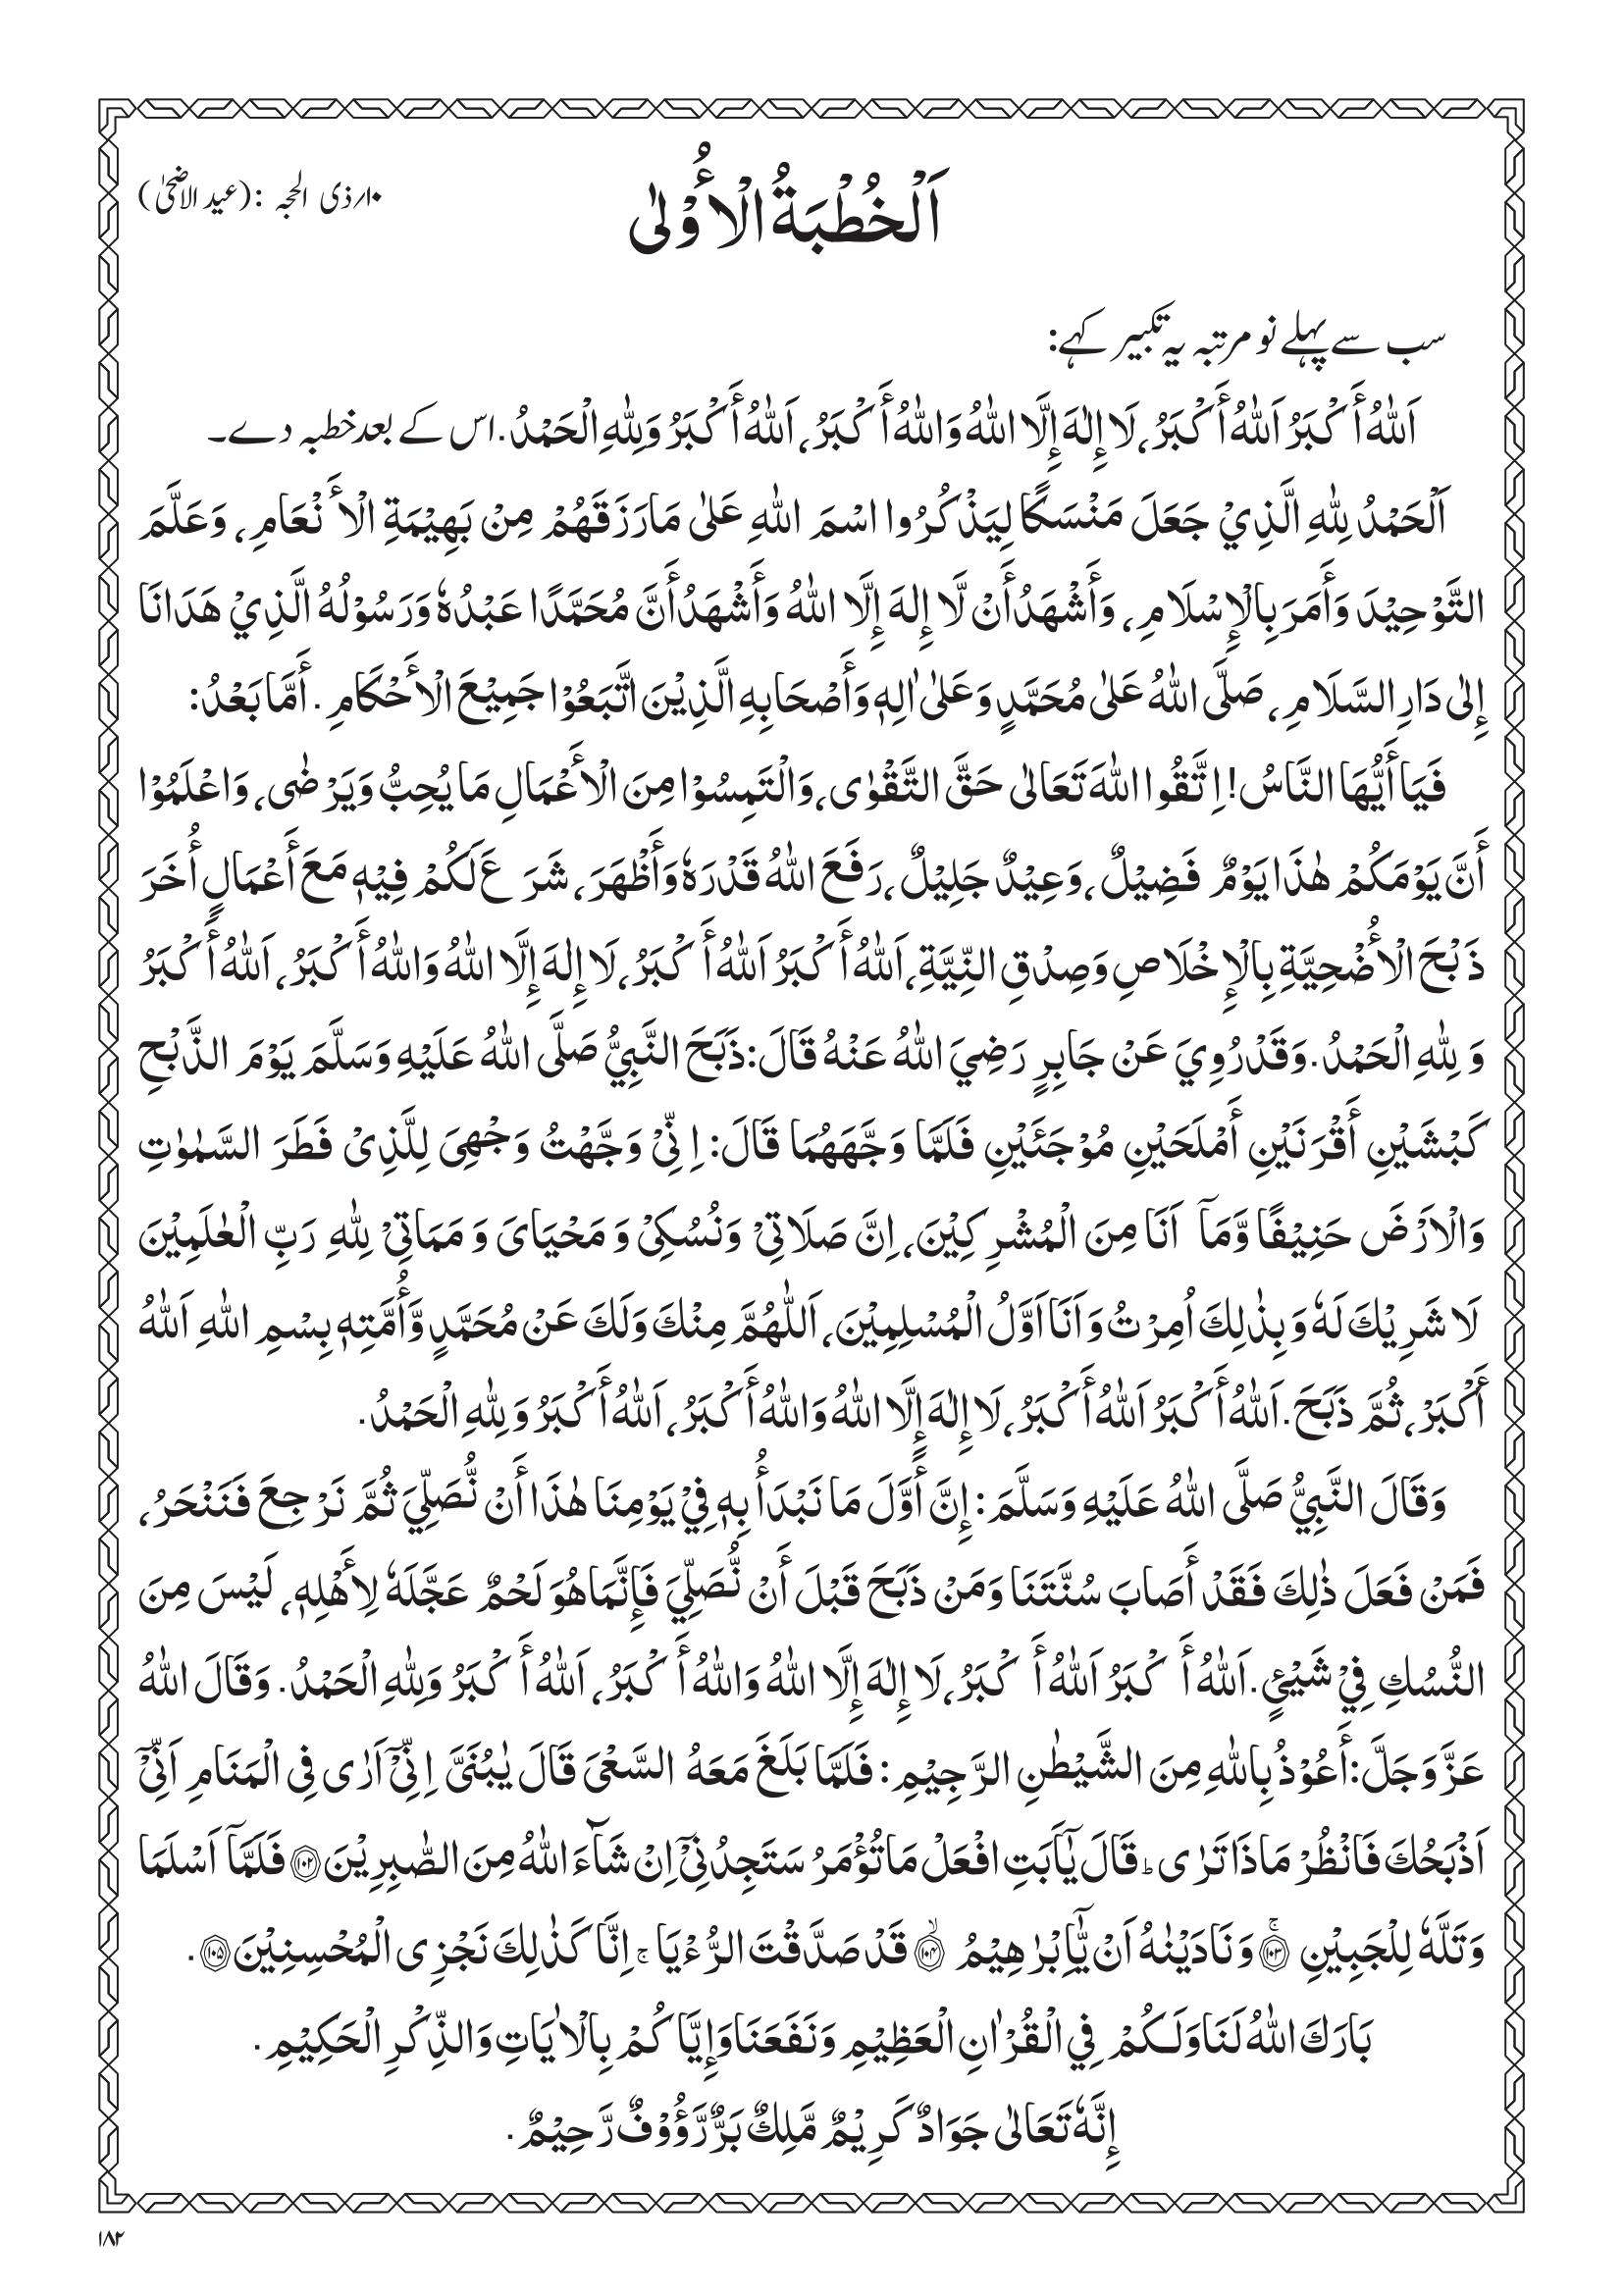 اَلْخُطْبَةُ الْأُوْلٰى
۱۰؍ذی الحجہ :(عید الاضحیٰ)
سب سے پہلے نو مرتبہ یہ تکبیر کہے:
اَللّٰهُ أَكْبَرُ اَللّٰهُ أَكْبَرُ، لَا إِلٰهَ إِلَّا اللّٰهُ وَاللّٰهُ أَكْبَرُ، اَللّٰهُ أَكْبَرُ وَلِلّٰهِ الْحَمْدُ. اس کے بعد خطبہ دے۔
اَلْحَمْدُ لِلّٰهِ الَّذِيْ جَعَلَ مَنْسَكًا لِيَذْكُرُوا اسْمَ اللّٰهِ عَلٰى مَارَزَقَهُمْ مِنْ بَهِيْمَةِ الْأَنْعَامِ، وَعَلَّمَ
التَّوْحِيْدَ وَأَمَرَ بِالْإِسْلَامِ، وَأَشْهَدُ أَنْ لَّا إِلهَ إِلَّا اللّٰهُ وَأَشْهَدُ أَنَّ مُحَمَّدًا عَبْدُهٗ وَرَسُوْلُهُ الَّذِيْ هَدَانَا
إِلٰى دَارِ السَّلَامِ، صَلَّى اللّٰهُ عَلٰى مُحَمَّدٍ وَعَلٰى اٰلِهٖ وَأَصْحَابِهِ الَّذِيْنَ اتَّبَعُوْا جَمِيْعَ الْأَحْكَامِ. أَمَّا بَعْدُ:
فَيَا أَيُّهَا النَّاسُ! اِتَّقُوا اللّٰهَ تَعَالٰى حَقَّ التَّقْوٰى، وَالْتَمِسُوْا مِنَ الْأَعْمَالِ مَا يُحِبُّ وَيَرْضٰى، وَاعْلَمُوْا
أَنَّ يَوْمَكُمْ هٰذَا يَوْمٌ فَضِيْلٌ، وَعِيْدٌ جَلِيْلٌ، رَفَعَ اللّٰهُ قَدْرَهٗ وَأَظْهَرَ، شَرَعَ لَكُمْ فِيْهِ مَعَ أَعْمَالٍ أُخَرَ
ذَبْحَ الْأُضْحِيَّةِ بِالْإِخْلَاصِ وَصِدْقِ النِّيَّةِ، اَللّٰهُ أَكْبَرُ اَللّٰهُ أَكْبَرُ، لَا إِلٰهَ إِلَّا اللّٰهُ وَاللّٰهُ أَكْبَرُ، اَللّٰهُ أَكْبَرُ
وَ لِلّٰهِ الْحَمْدُ. وَقَدْ رُوِيَ عَنْ جَابِرٍ رَضِيَ اللّٰهُ عَنْهُ قَالَ: ذَبَحَ النَّبِيُّ صَلَّى اللّٰهُ عَلَيْهِ وَسَلَّمَ يَوْمَ الذَّبْحِ
كَبْشَيْنِ أَقْرَنَيْنِ أَمْلَحَيْنِ مُوْجَئَيْنِ فَلَمَّا وَجَّهَهُمَا قَالَ: اِنِّىْ وَجَّهْتُ وَجْهِىَ لِلَّذِىْ فَطَرَ السَّمٰوٰتِ
وَالْاَرْضَ حَنِيْفًا وَّمَآ اَنَا مِنَ الْمُشْرِكِيْنَ، اِنَّ صَلَاتِىْ وَنُسُكِىْ وَ مَحْيَاىَ وَ مَمَاتِىْ لِلّٰهِ رَبِّ الْعٰلَمِيْنَ
لَا شَرِيْكَ لَهٗ وَ بِذٰلِكَ اُمِرْتُ وَ اَنَا اَوَّلُ الْمُسْلِمِيْنَ، اَللّٰهُمَّ مِنْكَ وَلَكَ عَنْ مُحَمَّدٍ وَّأُمَّتِهٖ بِسْمِ اللّٰهِ اَللّٰهُ
أَكْبَرْ، ثُمَّ ذَبَحَ. اَللّٰهُ أَكْبَرُ اَللّٰهُ أَكْبَرُ، لَا إِلٰهَ إِلَّا اللّٰهُ وَاللّٰهُ أَكْبَرُ، اَللّٰهُ أَكْبَرُ وَ لِلّٰهِ الْحَمْدُ.
وَقَالَ النَّبِيُّ صَلَّى اللّٰهُ عَلَيْهِ وَسَلَّمَ: إِنَّ أَوَّلَ مَا نَبْدَأُ بِهٖ فِيْ يَوْمِنَا هٰذَا أَنْ نُّصَلِّيَ ثُمَّ نَرْجِعَ فَنَنْحَرُ،
فَمَنْ فَعَلَ ذٰلِكَ فَقَدْ أَصَابَ سُنَّتَنَا وَمَنْ ذَبَحَ قَبْلَ أَنْ نُّصَلِّيَ فَإِنَّمَا هُوَ لَحْمٌ عَجَّلَهٗ لِأَهْلِهٖ، لَيْسَ مِنَ
النُّسُكِ فِيْ شَيْئٍ. اَللّٰهُ أَكْبَرُ اَللّٰهُ أَكْبَرُ، لَا إِلٰهَ إِلَّا اللّٰهُ وَاللّٰهُ أَكْبَرُ، اَللّٰهُ أَكْبَرُ وَلِلّٰهِ الْحَمْدُ. وَقَالَ اللّٰهُ
عَزَّوَجَلَّ: أَعُوْذُ بِاللّٰهِ مِنَ الشَّيْطٰنِ الرَّجِيْمِ: فَلَمَّا بَلَغَ مَعَهُ السَّعْىَ قَالَ يٰبُنَىَّ اِنِّىْٓ اَرٰى فِى الْمَنَامِ اَنِّىْٓ
اَذْبَحُكَ فَانْظُرْ مَاذَا تَرٰى ؕ قَالَ يٰٓاَبَتِ افْعَلْ مَا تُؤْمَرُ سَتَجِدُنِىْٓ اِنْ شَآءَ اللّٰهُ مِنَ الصّٰبِرِيْنَ ﴿۱۰۲﴾ فَلَمَّآ اَسْلَمَا
وَتَلَّهٗ لِلْجَبِيْنِ ﴿۱۰۳﴾ۚ وَنَادَيْنٰهُ اَنْ يّٰٓاِبْرٰهِيْمُ ﴿۱۰۴﴾ۙ قَدْ صَدَّقْتَ الرُّءْيَا ۚ اِنَّا كَذٰلِكَ نَجْزِى الْمُحْسِنِيْنَ ﴿۱۰۵﴾.
بَارَكَ اللّٰهُ لَنَا وَلَكُمْ فِي الْقُرْاٰنِ الْعَظِيْمِ وَنَفَعَنَا وَإِيَّاكُمْ بِالْاٰيَاتِ وَالذِّكْرِ الْحَكِيْمِ.
إِنَّهٗ تَعَالٰى جَوَادٌ كَرِيْمٌ مَّلِكٌ بَرٌّ رَّؤُوْفٌ رَّحِيْمٌ.
۱۸۲